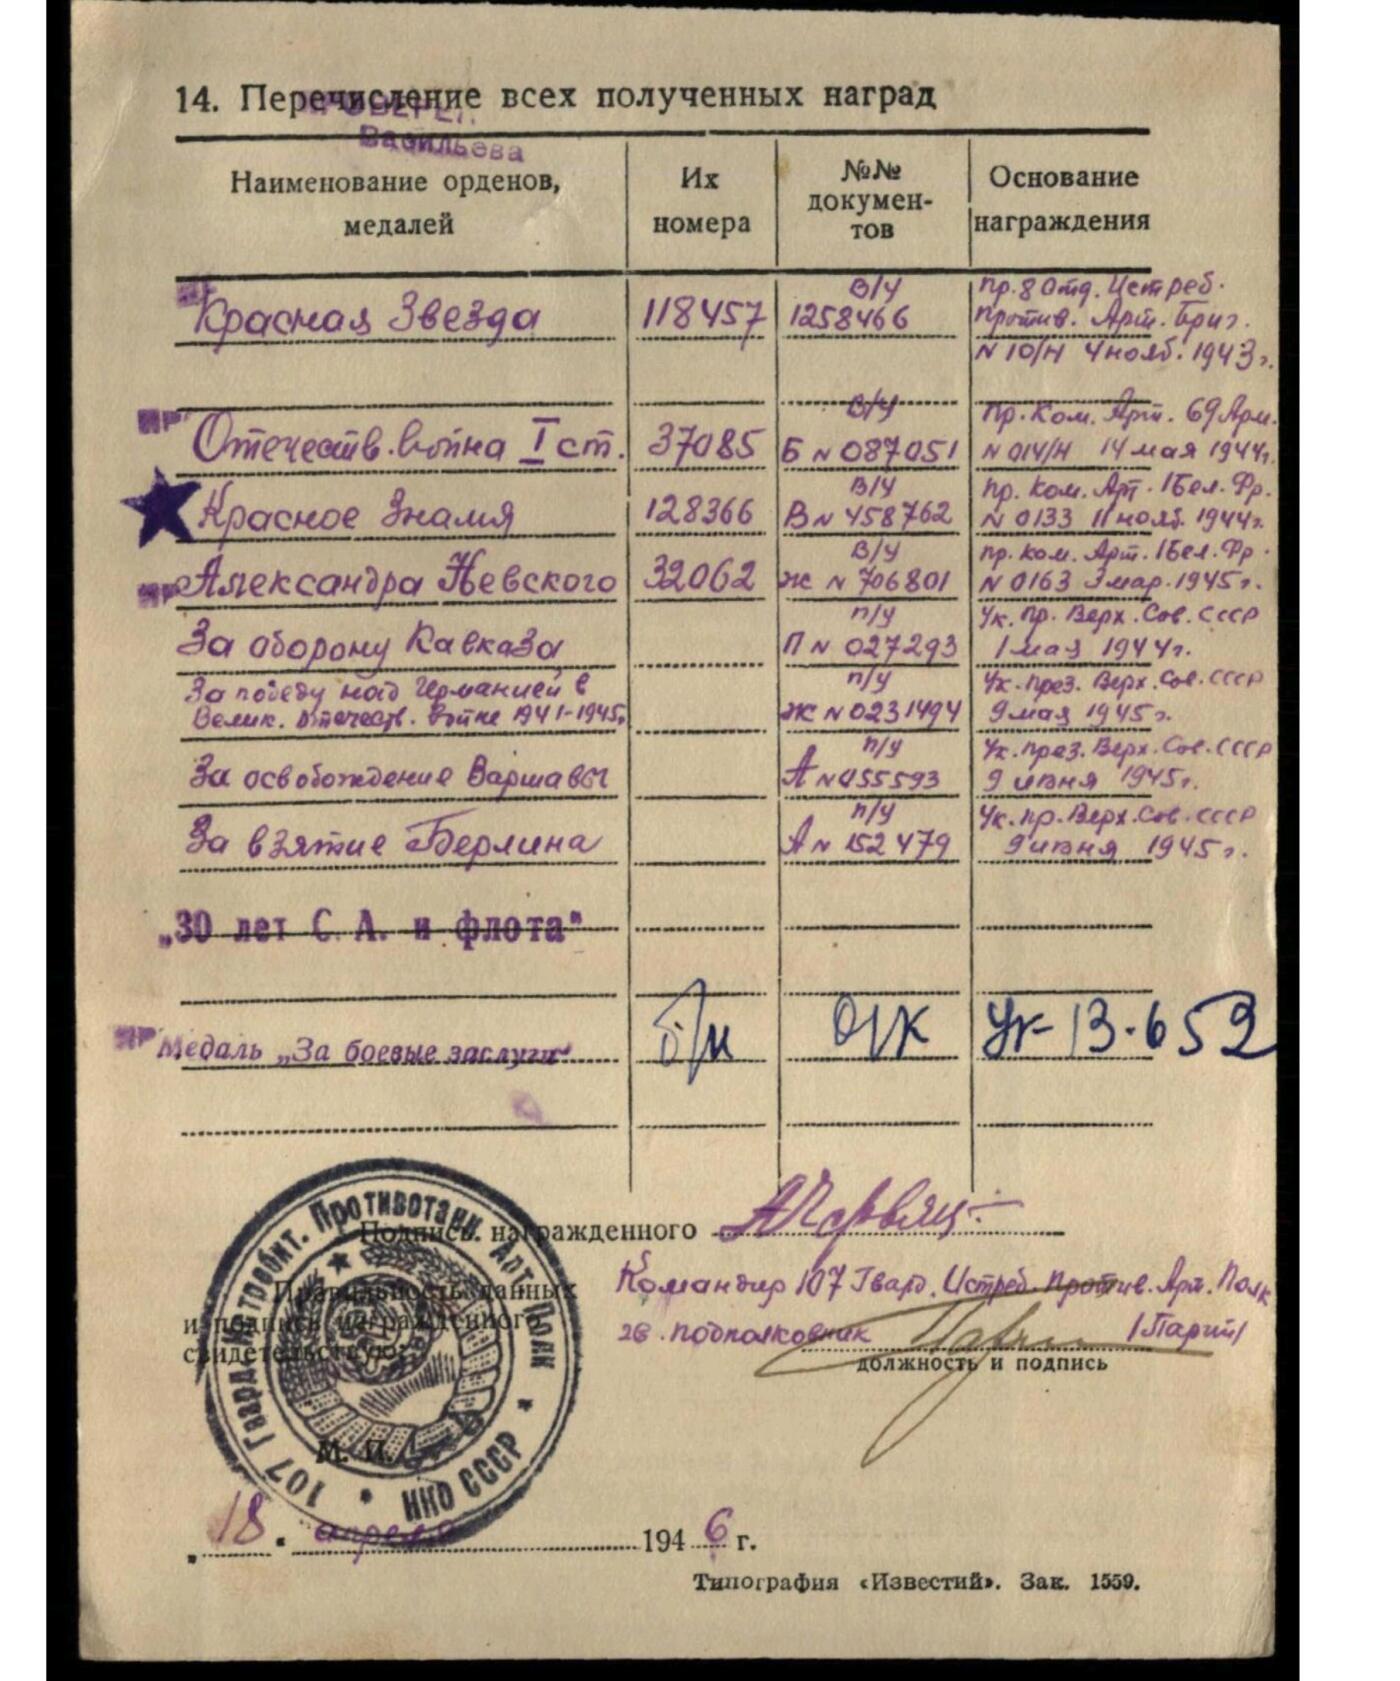 14. Перечисление всех полученных наград
Васильева
Наименование орденов, медалей
Их номера
№№ докумен-тов
Основание награждения
Красная Звезда 118457 В/У 1258466 Пр. 8 Отд. Истреб. Против. Арт. Бриг. N 10/Н 4 нояб. 1943 г.
Отечеств. война I ст. 37085 В/У Б N 087051 Пр. Ком. Арт. 69 Арм. N 014/Н 14 мая 1944 г.
Красное Знамя 128366 В/У В N 458762 Пр. Ком. Арт. 1 Бел. Фр. N 0133 11 нояб. 1944 г.
Александра Невского 32062 В/У Ж N 706801 Пр. Ком. Арт. 1 Бел. Фр. N 0163 3 мар. 1945 г.
За оборону Кавказа П/У П N 027293 Ук. Пр. Верх. Сов. СССР 1 мая 1944 г.
За победу над Германией в Велик. Отечеств. Войне 1941-1945 г. П/У Ж N 0231494 Ук. През. Верх. Сов. СССР 9 мая 1945 г.
За освобождение Варшавы П/У А N 055593 Ук. През. Верх. Сов. СССР 9 июня 1945 г.
За взятие Берлина П/У А N 152479 Ук. Пр. Верх. Сов. СССР 9 июня 1945 г.
„30 лет С. А. и флота"
Медаль „За боевые заслуги" б/н О/К Ук-13.6 52
Подпись награжденного
Командир 107 Гвард. Истреб. Против. Арт. Полк
гв. подполковник /Парт/
должность и подпись
Правильность данных
и подпись награжденного
свидетельствую:
М. П.
107 Гвард. Истребит. Противотанк. Арт. Полк НКО СССР
„18" апреля 1946 г.
Типография «Известий». Зак. 1559.